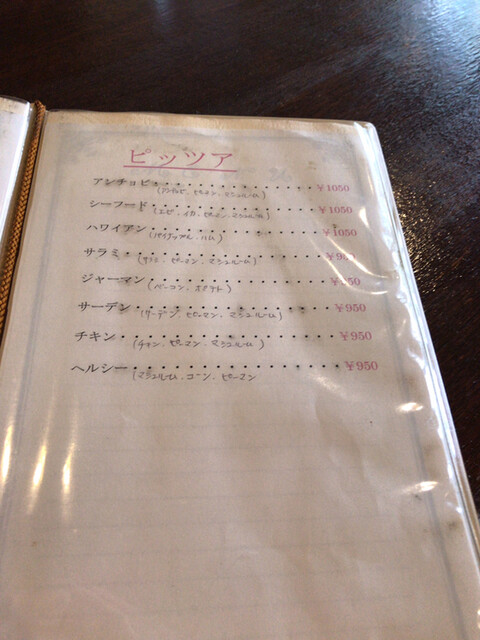 ピッツア
アンチョビ・・・・・・・・・・・・・・・￥1050
(アンチョビ、ピーマン、マシュルーム)
シーフード・・・・・・・・・・・・・・・￥1050
(エビ、イカ、ピーマン、マシュルーム)
ハワイアン・・・・・・・・・・・・・・・￥1050
(パイナップル、ハム)
サラミ・・・・・・・・・・・・・・・・・￥950
(サラミ、ピーマン、マシュルーム)
ジャーマン・・・・・・・・・・・・・・・￥950
(ベーコン、ポテト)
サーデン・・・・・・・・・・・・・・・・￥950
(サーデン、ピーマン、マシュルーム)
チキン・・・・・・・・・・・・・・・・・￥950
(チキン、ピーマン、マシュルーム)
ヘルシー・・・・・・・・・・・・・・・・￥950
(マシュルーム、コーン、ピーマン